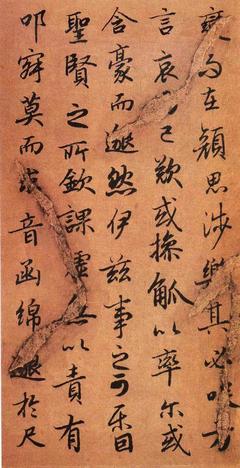 變而在顔思涉樂其必咲方
言哀而已歎或操觚以率尔或
含豪而邈然伊茲事之可樂固
聖賢之所欽課虛無以責有
叩寂莫而求音函綿邈於尺